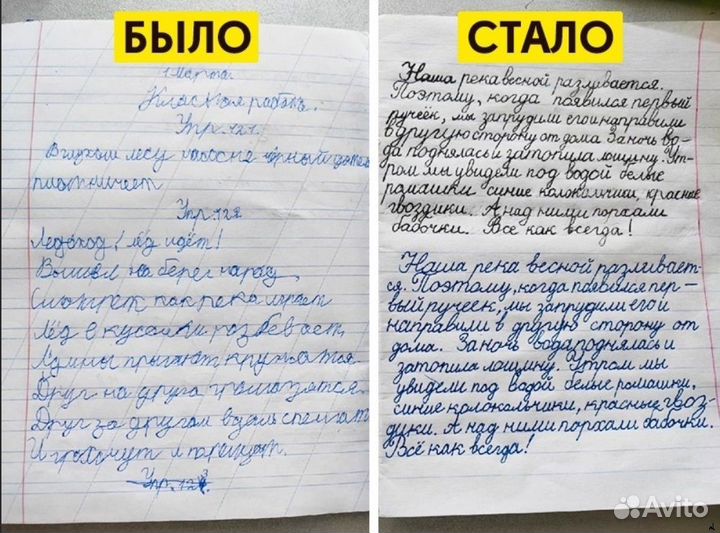 БЫЛО
1 Марта.
Класная работа.
Упр. 121.
В глухом лесу на сосне чёрный дятел
плотничает
Упр. 122
Ледоход! Лёд идёт!
Вышел на берег народ
Смотреть как река играет
Лёд в кусочки розбевает
Льдины прыгают кружатся
Друг на друга громоздятся
Друг за другом вдаль спешат
И грохочут и трещат.
Упр. 123.
СТАЛО
Наша река весной разливается.
Поэтому, когда появился первый
ручеёк, мы запрудили его и направили
в другую сторону от дома. За ночь во-
да поднялась и затопила лощину. Ут-
ром мы увидели под водой белые
ромашки синие колокольчики, красные
гвоздики. А над ними порхали
бабочки. Всё как всегда!
Наша река весной разливает-
ся. Поэтому, когда появился пер-
вый ручеек, мы запрудили его и
направили в другую сторону от
дома. За ночь вода поднялась и
затопила лощину. Утром мы
увидели под водой белые ромашки,
синие колокольчики, красные гвоз-
дики. А над ними порхали бабочки.
Всё как всегда!
Avito